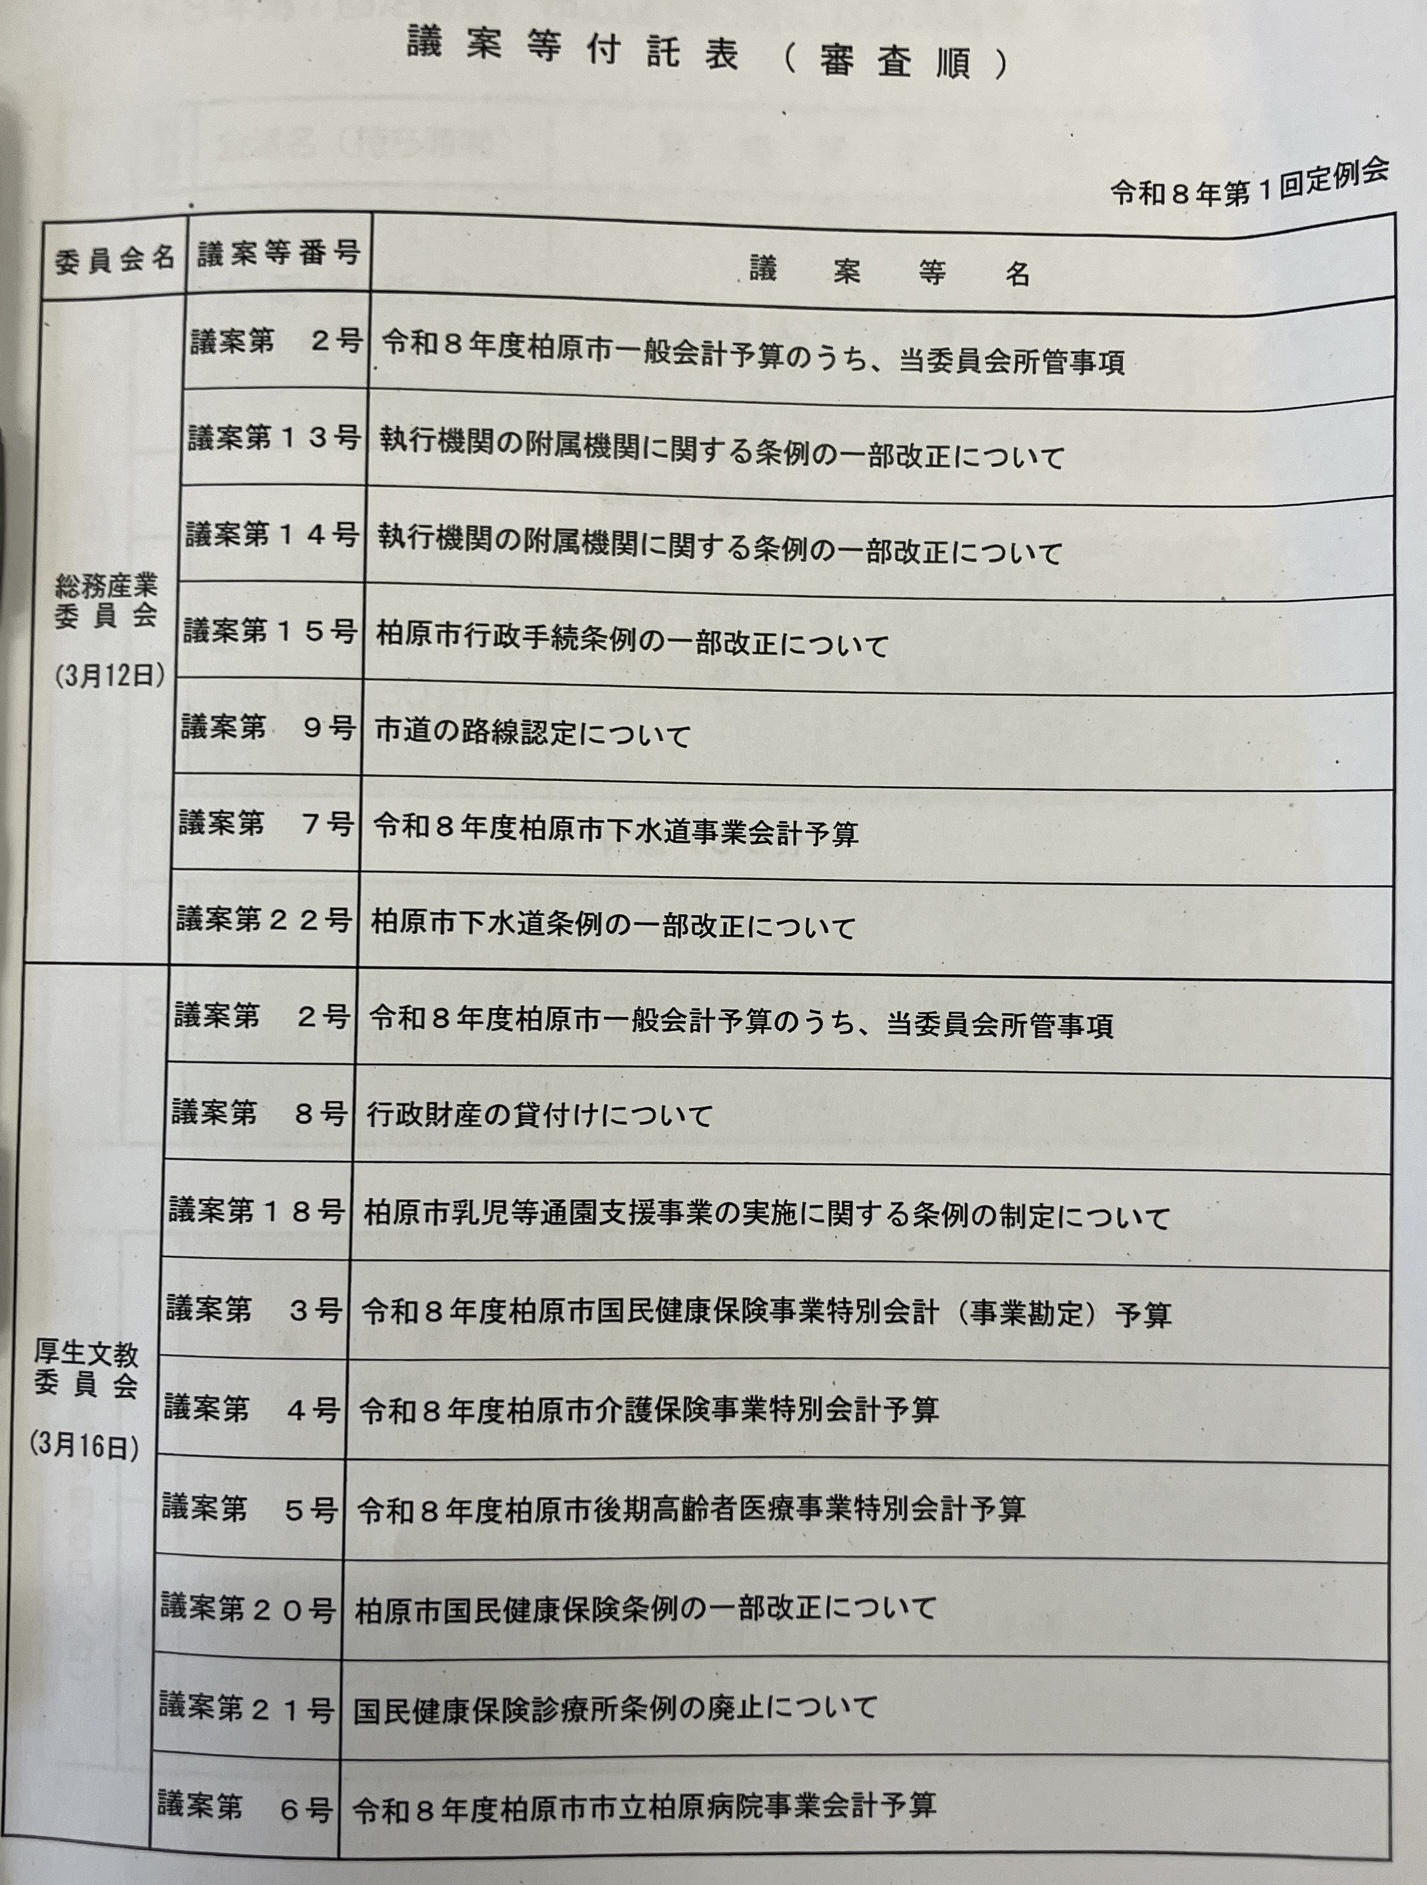 議案等付託表（審査順）
令和８年第１回定例会
委員会名 議案等番号 議案等名
総務産業
委員会
(3月12日)
議案第　２号 令和８年度柏原市一般会計予算のうち、当委員会所管事項
議案第１３号 執行機関の附属機関に関する条例の一部改正について
議案第１４号 執行機関の附属機関に関する条例の一部改正について
議案第１５号 柏原市行政手続条例の一部改正について
議案第　９号 市道の路線認定について
議案第　７号 令和８年度柏原市下水道事業会計予算
議案第２２号 柏原市下水道条例の一部改正について
厚生文教
委員会
(3月16日)
議案第　２号 令和８年度柏原市一般会計予算のうち、当委員会所管事項
議案第　８号 行政財産の貸付けについて
議案第１８号 柏原市乳児等通園支援事業の実施に関する条例の制定について
議案第　３号 令和８年度柏原市国民健康保険事業特別会計（事業勘定）予算
議案第　４号 令和８年度柏原市介護保険事業特別会計予算
議案第　５号 令和８年度柏原市後期高齢者医療事業特別会計予算
議案第２０号 柏原市国民健康保険条例の一部改正について
議案第２１号 国民健康保険診療所条例の廃止について
議案第　６号 令和８年度柏原市市立柏原病院事業会計予算